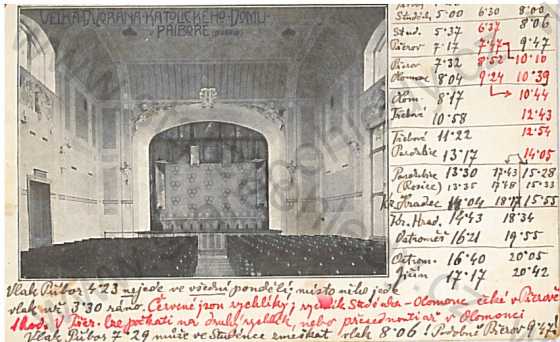 VELKÁ DVORANA KATOLICKÉHO DOMU
PŘÍBORE
Studén. 5·00 6·30 8·00
Stud. 5·37 6·37 8·06
Přerov 7·17 7·47 9·47
Přerov 7·32 8·52 10·10
Olomouc 8·04 9·24 10·39
Olom. 8·17 10·44
Třebová 10·58 12·43
Třebová 11·22 12·54
Pardubice 13·17 14·05
Pardubice 13·30 17·43 15·28
(Rosice) 13·35 17·48 15·33
Hradec 14·04 18·17 15·55
Kr. Hrad. 14·43 18·34
Ostroměř 16·21 19·55
Ostrom. 16·40 20·05
Jičín 17·17 20·42
Vlak Příbor 4·23 nejede ve všední pondělí, místo něho jede
vlak už 3·30 ráno. Červené jsou rychlíky; rychlík Studénka - Olomouc čeká v Přerově
1 hod. V Přer. lze počkati na druhý rychlík, nebo přesednouti až v Olomouci
Vlak Příbor 7·29 může ve Studénce zmeškat vlak 8·06! Podobně Přerov 9·47!